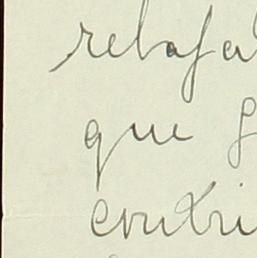 rebafa
que g
contri